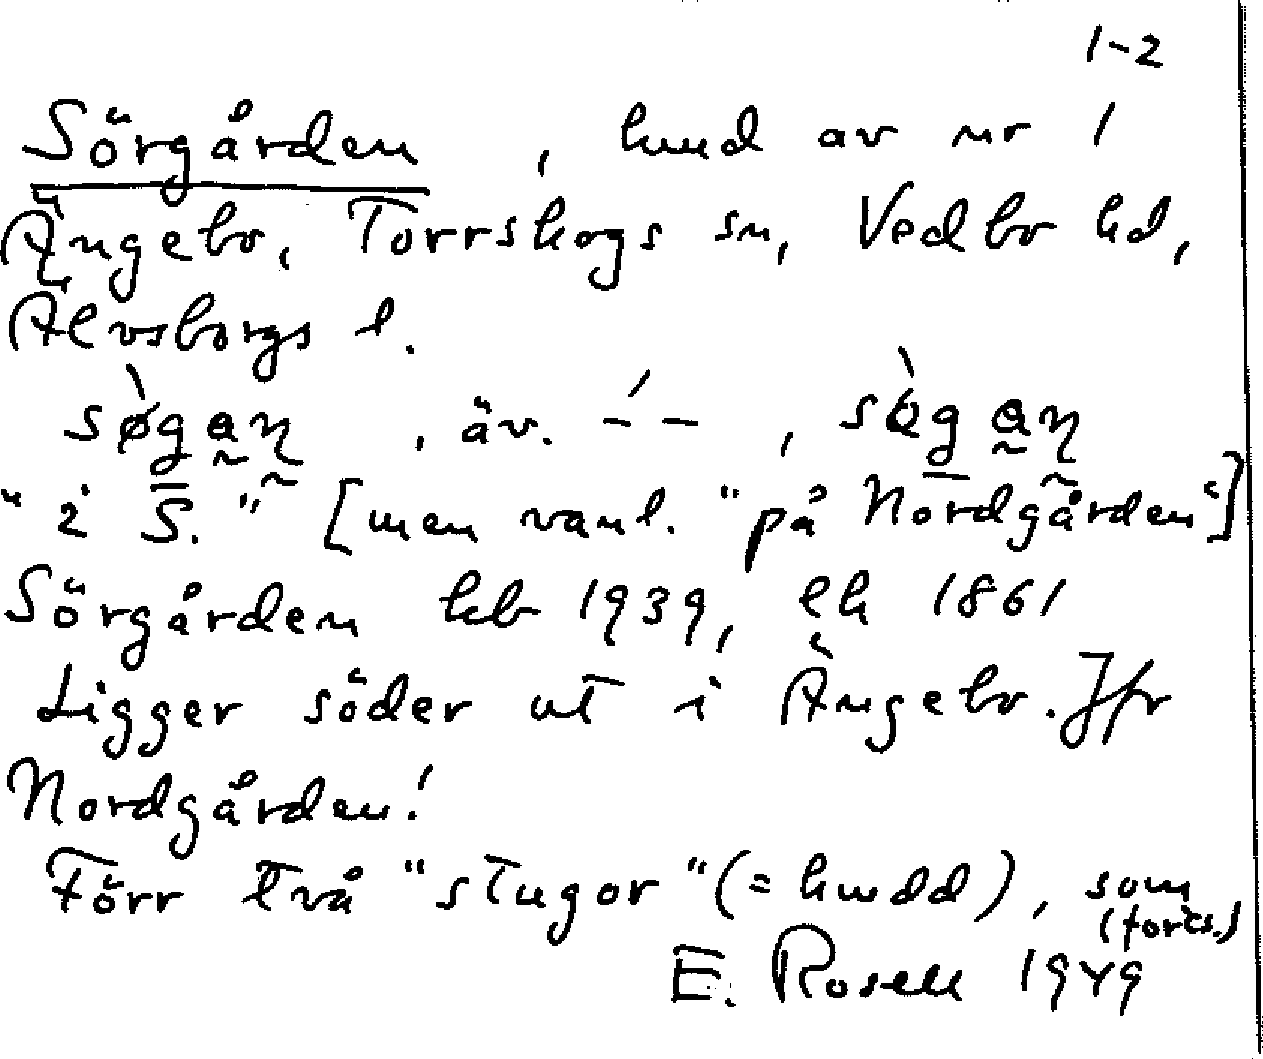 1-2
Sörgården, hmd av nr 1
Ängebo, Torrskogs sn, Vedbo hd,
Älvsborgs l.
"i S." [men vanl. "på Nordgården"]
Sörgården kb 1939, ek 1861
Ligger söder ut i Ängebo. Jfr
Nordgården!
Förr två "stugor" (= hmdd), som
(forts.)
E. Rosell 1949